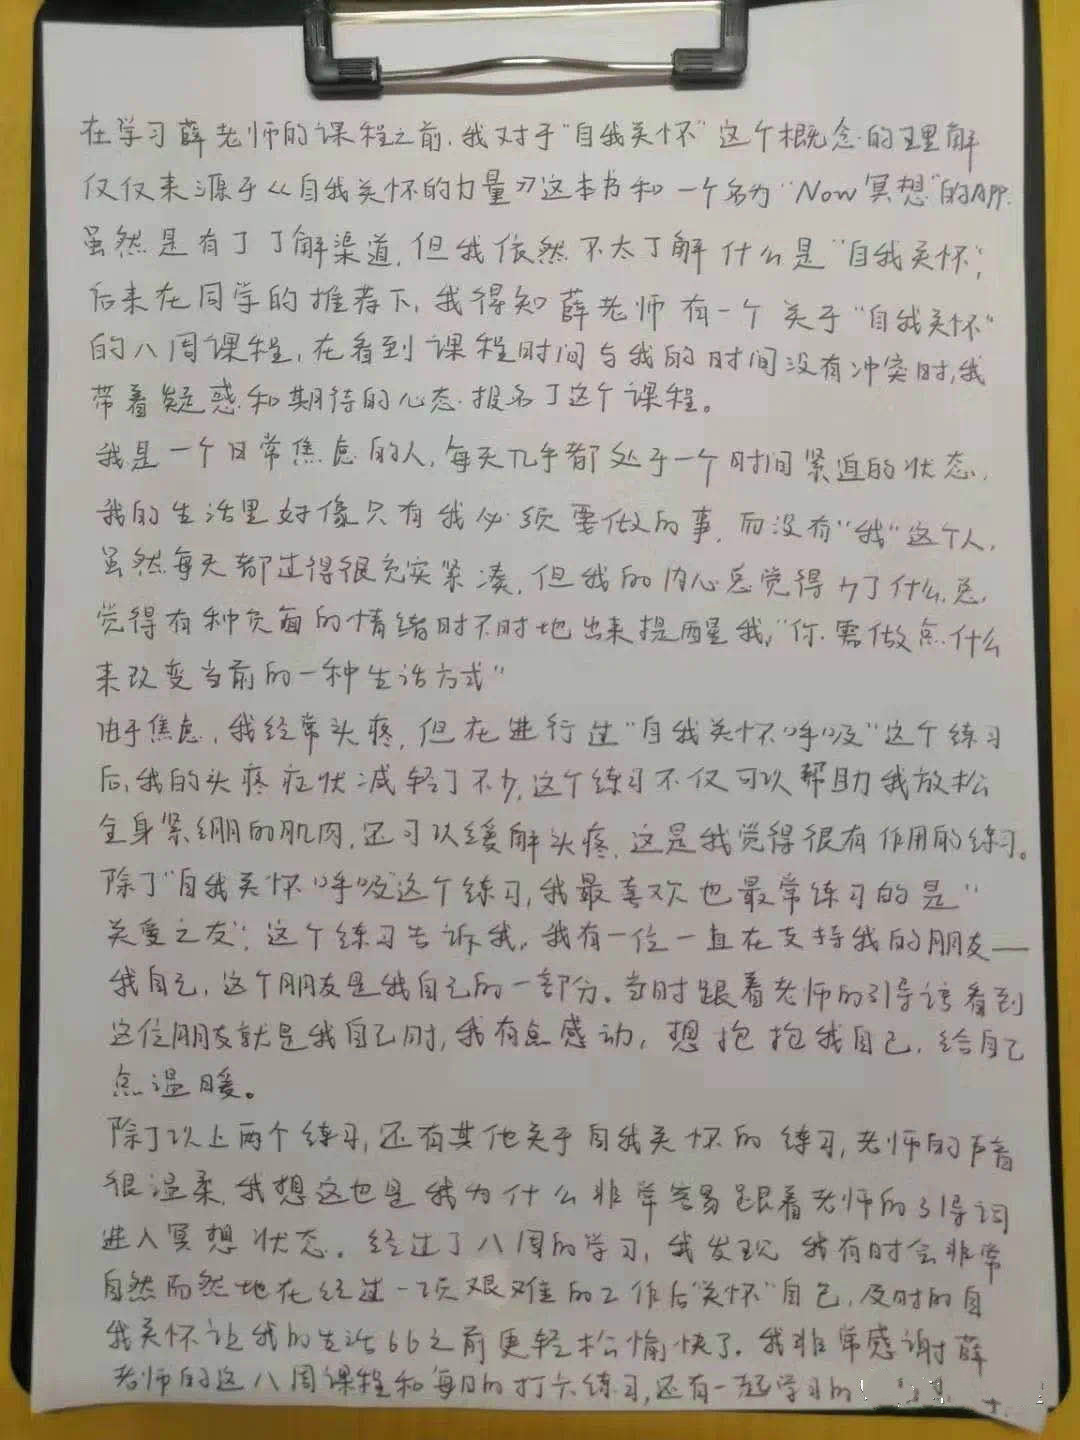 在学习薛老师的课程之前,我对于"自我关怀"这个概念的理解
仅仅来源于《自我关怀的力量》这本书和一个名为"Now冥想"的APP.
虽然是有了了解渠道,但我依然不太了解什么是"自我关怀",
后来在同学的推荐下,我得知薛老师有一个关于"自我关怀"
的八周课程,在看到课程时间与我的时间没有冲突时,我
带着疑惑和期待的心态报名了这个课程。
我是一个日常焦虑的人,每天几乎都处于一个时间紧迫的状态,
我的生活里好像只有我必须要做的事,而没有"我"这个人,
虽然每天都过得很充实紧凑,但我的内心总觉得少了什么,总
觉得有种负面的情绪时不时地出来提醒我,"你需做点什么
来改变当前的一种生活方式"
由于焦虑,我经常头疼,但在进行过"自我关怀呼吸"这个练习
后,我的头疼症状减轻了不少,这个练习不仅可以帮助我放松
全身紧绷的肌肉,还可以缓解头疼,这是我觉得很有作用的练习。
除了"自我关怀呼吸"这个练习,我最喜欢也最常练习的是"
关爱之友",这个练习告诉我,我有一位一直在支持我的朋友——
我自己,这个朋友是我自己的一部分。当时跟着老师的引导语看到
这位朋友就是我自己时,我有点感动,想抱抱我自己,给自己
点温暖。
除了以上两个练习,还有其他关于自我关怀的练习,老师的声音
很温柔,我想这也是我为什么非常容易跟着老师的引导词
进入冥想状态。经过了八周的学习,我发现我有时会非常
自然而然地在经过一项艰难的工作后"关怀"自己,及时的自
我关怀让我的生活比之前更轻松愉快了。我非常感谢薛
老师的这八周课程和每日的打卡练习,还有一起学习的